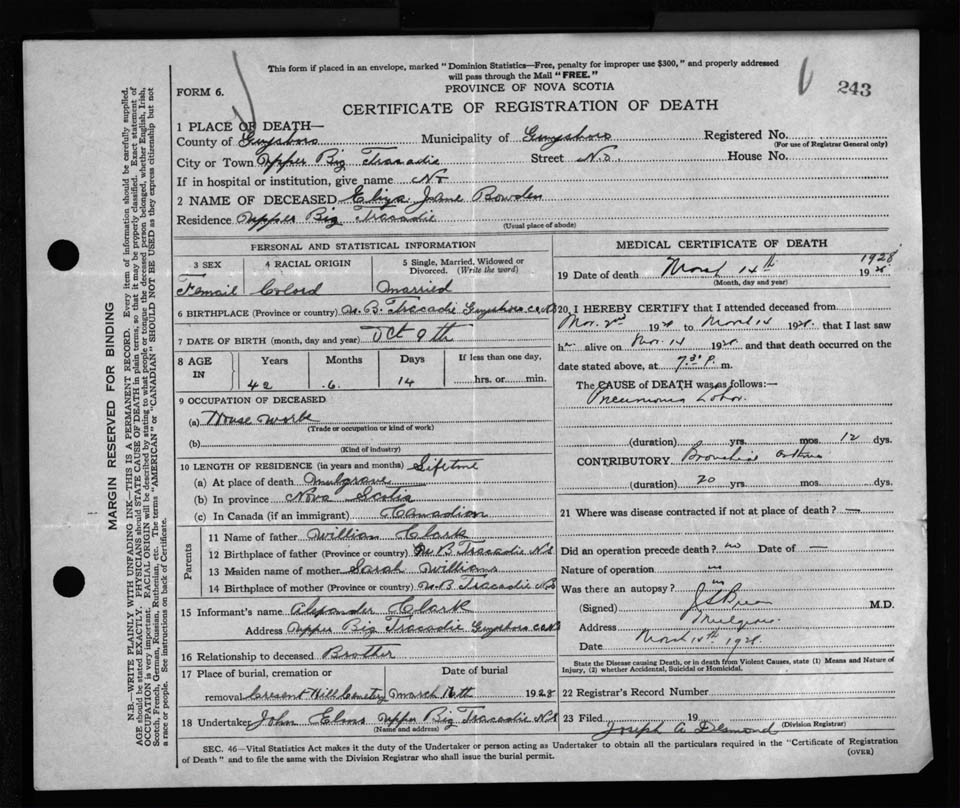 This form if placed in an envelope, marked "Dominion Statistics—Free, penalty for improper use $300," and properly addressed
will pass through the Mail "FREE."
FORM 6.
PROVINCE OF NOVA SCOTIA
243
CERTIFICATE OF REGISTRATION OF DEATH
1 PLACE OF DEATH—
County of Guysboro Municipality of Guysboro Registered No.
(For use of Registrar General only)
City or Town Upper Big Tracadie Street N.S. House No.
If in hospital or institution, give name No
2 NAME OF DECEASED Eliza Jane Bowden
Residence Upper Big Tracadie
(Usual place of abode)
PERSONAL AND STATISTICAL INFORMATION
3 SEX 4 RACIAL ORIGIN 5 Single, Married, Widowed or Divorced. (Write the word)
Femail Colord Married
6 BIRTHPLACE (Province or country) U. B. Tracadie Guysboro co NS
7 DATE OF BIRTH (month, day and year) Oct 9th
8 AGE IN Years Months Days If less than one day,
42 6 14 hrs. or min.
9 OCCUPATION OF DECEASED
(a) House worke
(Trade or occupation or kind of work)
(b)
(Kind of industry)
10 LENGTH OF RESIDENCE (in years and months) Lifetime
(a) At place of death Mulgrave
(b) In province Nova Scotia
(c) In Canada (if an immigrant) Canadion
Parents
11 Name of father William Clark
12 Birthplace of father (Province or country) U B Tracadie N S
13 Maiden name of mother Sarah Williams
14 Birthplace of mother (Province or country) U. B Tracadie N S
15 Informant's name Alexander Clark
Address Upper Big Tracadie Guysboro co NS
16 Relationship to deceased Brother
17 Place of burial, cremation or Date of burial
removal Cresent Hill Cemetry March 16th 1928
18 Undertaker John Elms Upper Big Tracadie N S
(Name and address)
MEDICAL CERTIFICATE OF DEATH
19 Date of death March 14th 1928
(Month, day and year)
20 I HEREBY CERTIFY that I attended deceased from
Mar. 2nd 1928 to March 14 1928, that I last saw
h alive on Mar. 14 1928 and that death occurred on the
date stated above, at 7.30 P. m.
The CAUSE of DEATH was as follows:—
Pneumonia Lobar.
(duration) yrs. mos. 12 dys.
CONTRIBUTORY. Bronchial Asthma
(duration) 20 yrs. mos. dys.
21 Where was disease contracted if not at place of death? —
Did an operation precede death? no Date of —
Nature of operation
Was there an autopsy? no
(Signed) M.D.
Address Mulgrave.
Date March 1928.
State the Disease causing Death, or in death from Violent Causes, state (1) Means and Nature of
Injury, (2) whether Accidental, Suicidal or Homicidal.
22 Registrar's Record Number
23 Filed 19
Joseph A Desmond
(Division Registrar)
SEC. 46—Vital Statistics Act makes it the duty of the Undertaker or person acting as Undertaker to obtain all the particulars required in the "Certificate of Registration
of Death" and to file the same with the Division Registrar who shall issue the burial permit.
(OVER)
MARGIN RESERVED FOR BINDING
N.B.—WRITE PLAINLY WITH UNFADING INK—THIS IS A PERMANENT RECORD. Every item of information should be carefully supplied.
AGE should be stated EXACTLY. PHYSICIANS should STATE CAUSE OF DEATH in plain terms, so that it may be properly classified. Exact statement of
OCCUPATION is very important. RACIAL ORIGIN will be described by stating to what people or tongue the deceased person belonged, whether English, Irish,
Scotch, French, German, Russian, Ruthenian, etc. The terms "AMERICAN" or "CANADIAN" SHOULD NOT BE USED as they express citizenship but not
a race or people. See instructions on back of Certificate.